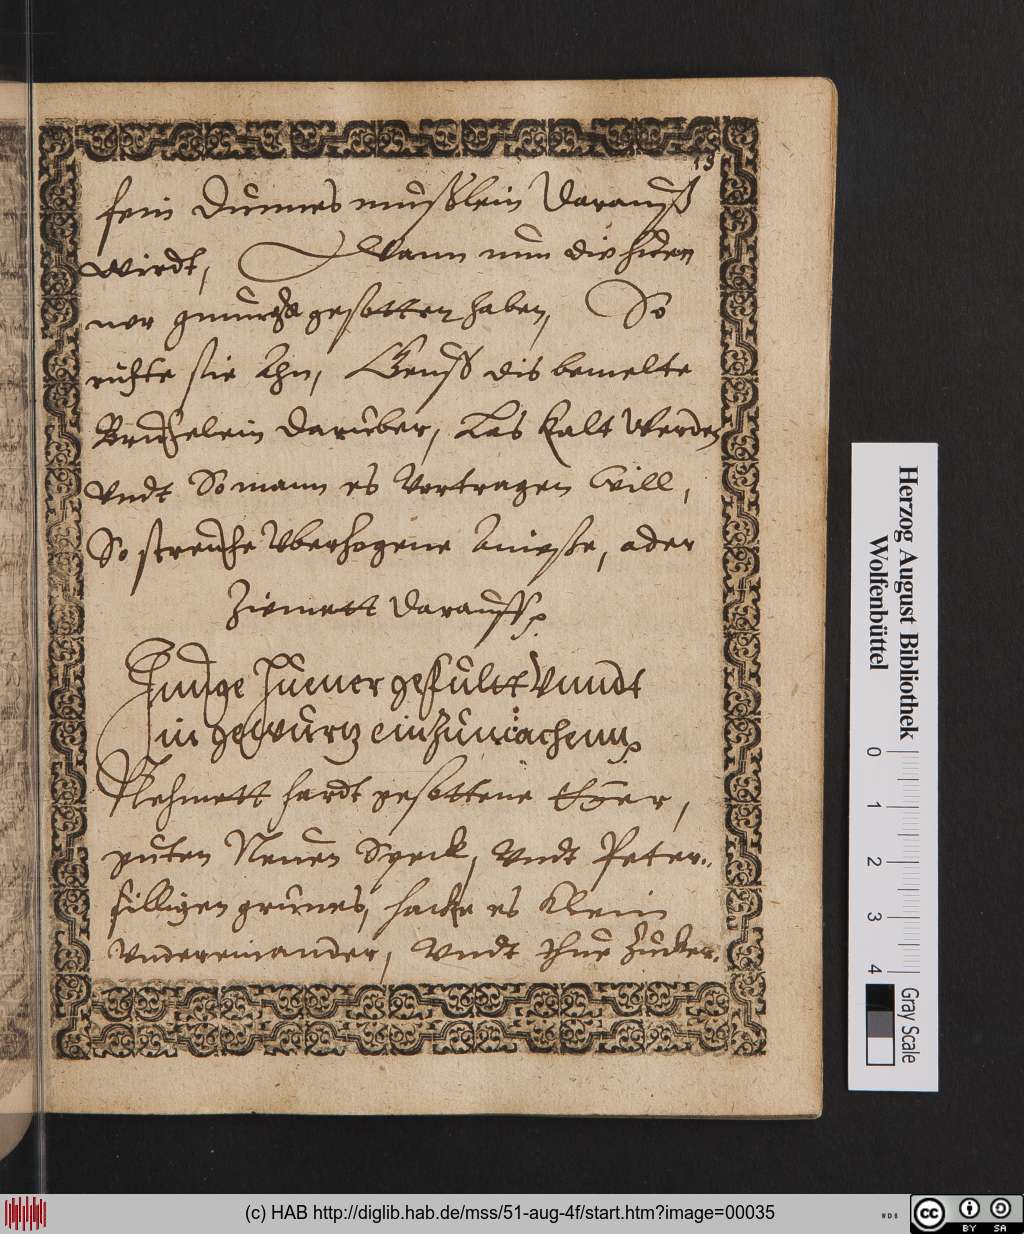 19
fein dunnes mußlein darauß
wirdt, Wann nun die huen
ner genueg gesotten haben, So
richte sie Ahn, Geuß dis bemelte
Bruehelein daruber, Las kalt werden
Vndt So mann es Vortragen will,
So strewhe Vberzogene Anieße, oder
Zimett darauff.
Junge Huener gefultt Vnndt
in gewurtz einzumachenn.
Nehmett hardt gesottene Eyer,
guten Neuen Speck, Vndt Peter-
silligen grunes, hacke es klein
Vndereinander, Vndt thue Zucker.
Herzog August Bibliothek
Wolfenbüttel
0 1 2 3 4
Gray Scale
(c) HAB http://diglib.hab.de/mss/51-aug-4f/start.htm?image=00035
WDB
cc
BY SA